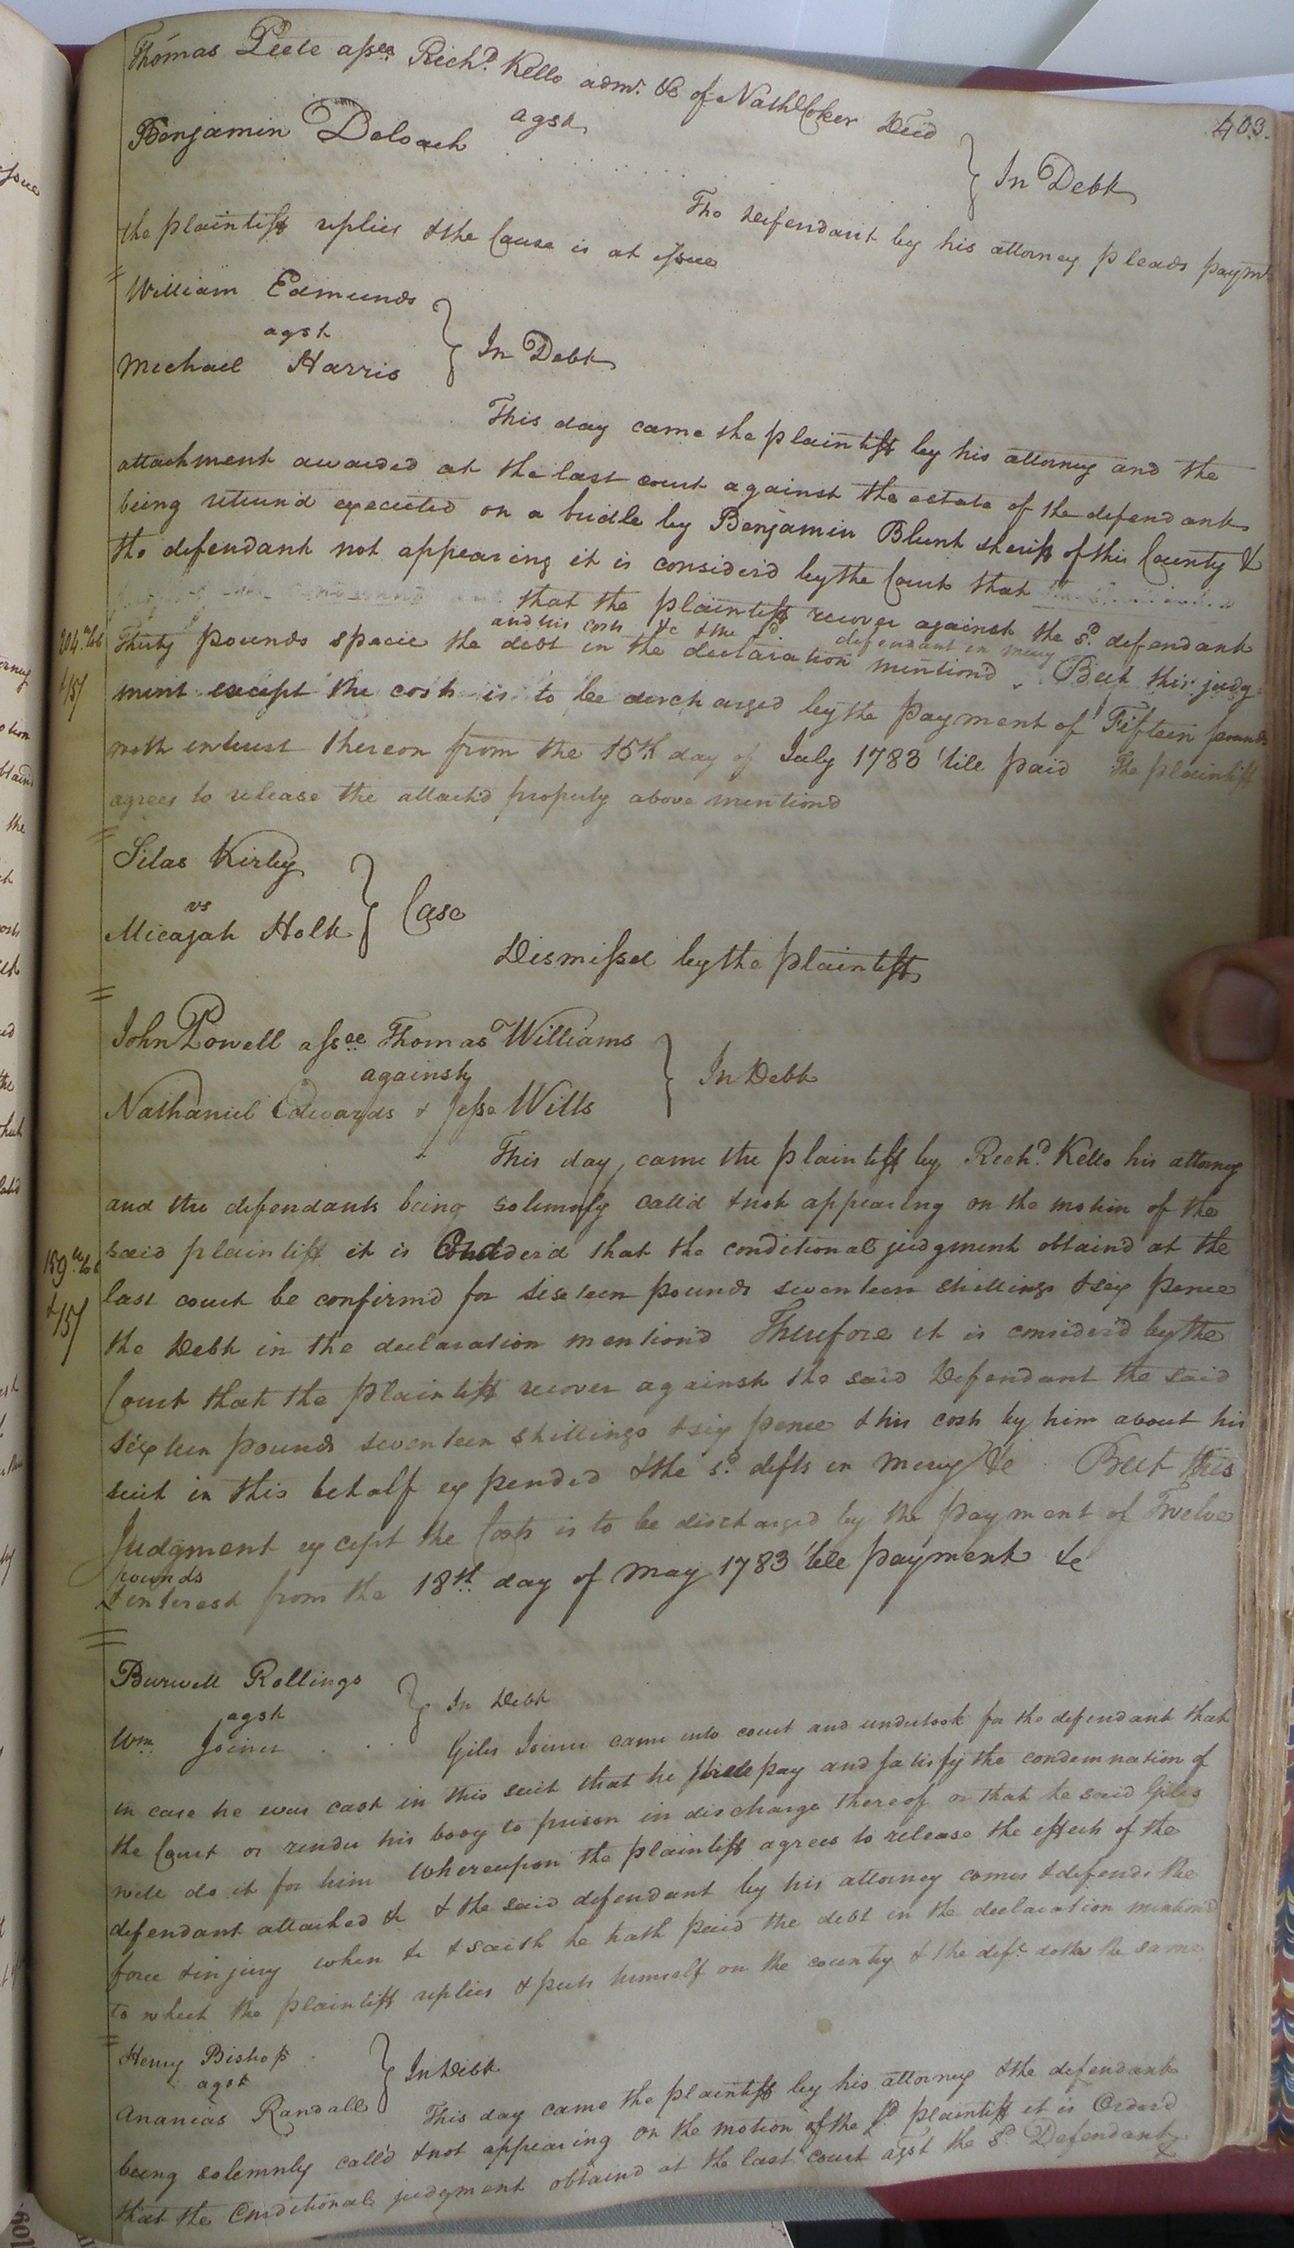 403.
Thomas Peete assee Richd. Kello admr. &c of Nathl Coker Decd
agst
Benjamin Deloach
In Debt
The defendant by his attorney pleads paymt
the plaintiff replies & the Cause is at issue
William Edmunds
agst
Michael Harris
In Debt
This day came the plaintiff by his attorney and the
attachment awarded at the last court against the estate of the defendant
being returnd executed on a bridle by Benjamin Blunt sheriff of this County &
the defendant not appearing it is considerd by the Court that
that the plaintiff recover against the sd. defendant
and his costs &c & the sd. defendant in mercy
Thirty pounds specie the debt in the declaration mentiond. But this judg
ment except the costs is to be discharged by the payment of Fifteen pounds
with interest thereon from the 15th day of July 1783 'till paid The plaintiff
agrees to release the attachd property above mentiond
Silas Kirby
vs
Micajah Holt
Case
Dismissed by the plaintiff
John Powell assee Thomas Williams
against
Nathaniel Edwards & Jesse Wills
In Debt
This day came the plaintiff by Richd. Kello his attorney
and the defendants being solemnly calld & not appearing on the motion of the
said plaintiff it is Considerd that the conditional judgment obtaind at the
last court be confirmd for sixteen pounds seventeen shillings & six pence
the Debt in the declaration mentiond Therefore it is considerd by the
Court that the plaintiff recover against the said Defendant the said
sixteen pounds seventeen shillings & six pence & his costs by him about his
suit in this behalf expended & the sd. defts in mercy &c But this
Judgment except the Costs is to be discharged by the payment of Twelve
pounds
& interest from the 18th. day of May 1783 'till payment &c
Burwell Rollings
agst
Wm. Joiner
In Debt
Giles Joiner came into court and undertook for the defendant that
in case he was cast in this suit that he shall pay and satisfy the condemnation of
the Court or render his body to prison in discharge thereof or that he said Giles
will do it for him Whereupon the plaintiff agrees to release the effects of the
defendant attached &c & the said defendant by his attorney comes & defends the
force & injury when &c & saith he hath paid the debt in the declaration mentiond
to which the plaintiff replies & puts himself on the country & the deft. doth the same
Henry Bishop
agst
Ananias Randall
In Debt
This day came the plaintiff by his attorney & the defendant
being solemnly calld & not appearing on the motion of the sd. plaintiff it is Orderd
that the Conditional judgment obtaind at the last court agst the sd. Defendant